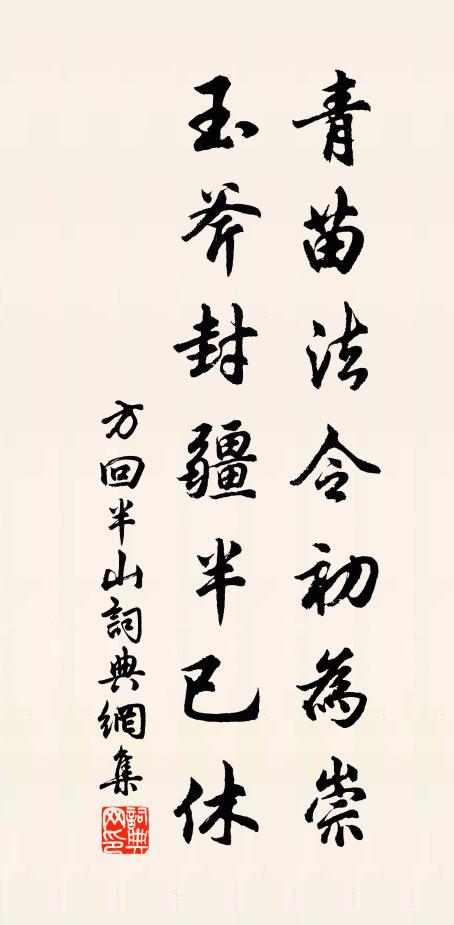 青苗法令初為祟
玉斧封疆半已休
方回半山詞典網集
詞典網印